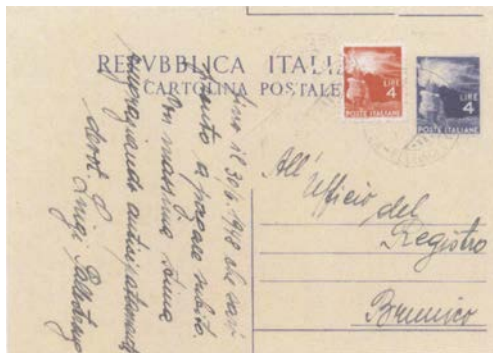 REPVBBLICA ITALIANA
CARTOLINA POSTALE
LIRE
4
POSTE ITALIANE
LIRE
4
POSTE ITALIANE
All'
Ufficio del
Registro
Brunico
fino il 30/6 1948 che sarò
pronto a pagare subito.
Con massima stima
ringraziando anticipatamente
devot. Luigi